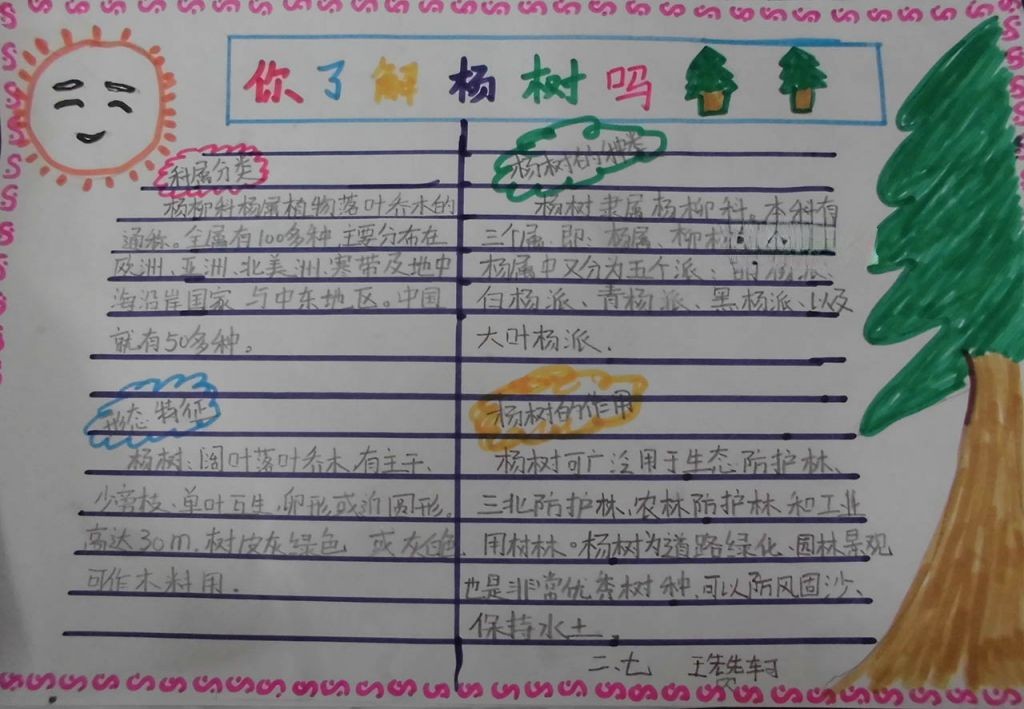 你了解杨树吗
科属分类
杨柳科杨属植物落叶乔木的
通称。全属有100多种,主要分布在
欧洲、亚洲、北美洲、寒带及地中
海沿岸国家与中东地区。中国
就有50多种。
杨树的种类
杨树隶属杨柳科。本科有
三个属,即:杨属、柳
杨属中又分为五个派:
白杨派、青杨派、黑杨派、以及
大叶杨派.
形态特征
杨树:阔叶落叶乔木,有主干、
少旁枝、单叶互生,卵形或近圆形。
高达30m,树皮灰绿色 或灰白色,
可作木料用.
杨树的作用
杨树可广泛用于生态防护林、
三北防护林、农林防护林和工业
用材林。杨树为道路绿化、园林景观
也是非常优秀树种,可以防风固沙、
保持水土。
二.七 王